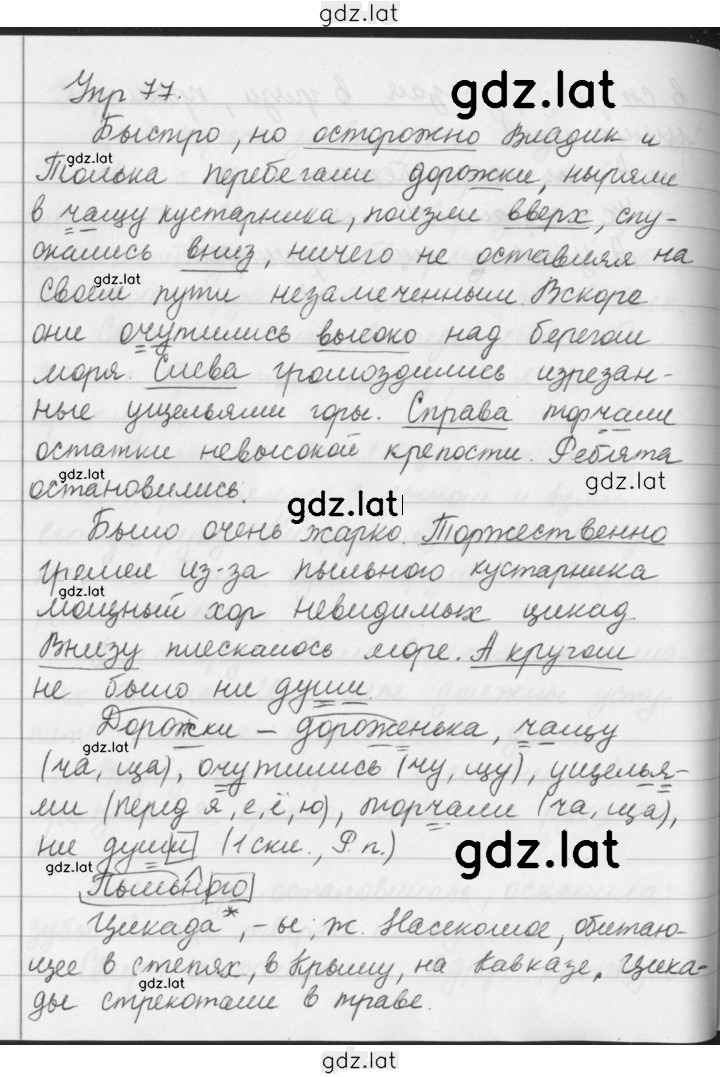 gdz.lat
Упр 77.
gdz.lat
Быстро, но осторожно Владик и
gdz.lat
Толька перебегали дорожки, ныряли
в чащу кустарника, ползли вверх, спу-
скались вниз, ничего не оставляя на
gdz.lat
своём пути незамеченным. Вскоре
они очутились высоко над берегом
моря. Слева громоздились изрезан-
ные ущельями горы. Справа торчали
остатки невысокой крепости. Ребята
gdz.lat
остановились.
gdz.lat
gdz.lat
Было очень жарко. Торжественно
гремел из-за пыльного кустарника
gdz.lat
мощный хор невидимых цикад.
Внизу плескалось море. А кругом
не было ни души.
Дорожки – дороженька, чащу
gdz.lat
(ча, ща), очутились (чу, щу), ущелья-
ми (перед я, е, ё, ю), торчали (ча, ща),
ни души (1 скл., Р. п.)
gdz.lat
gdz.lat
Пыльного
Цикада*, -ы, ж. Насекомое, обитаю-
щее в степях, в Крыму, на Кавказе. Цика-
gdz.lat
ды стрекотали в траве.
gdz.lat